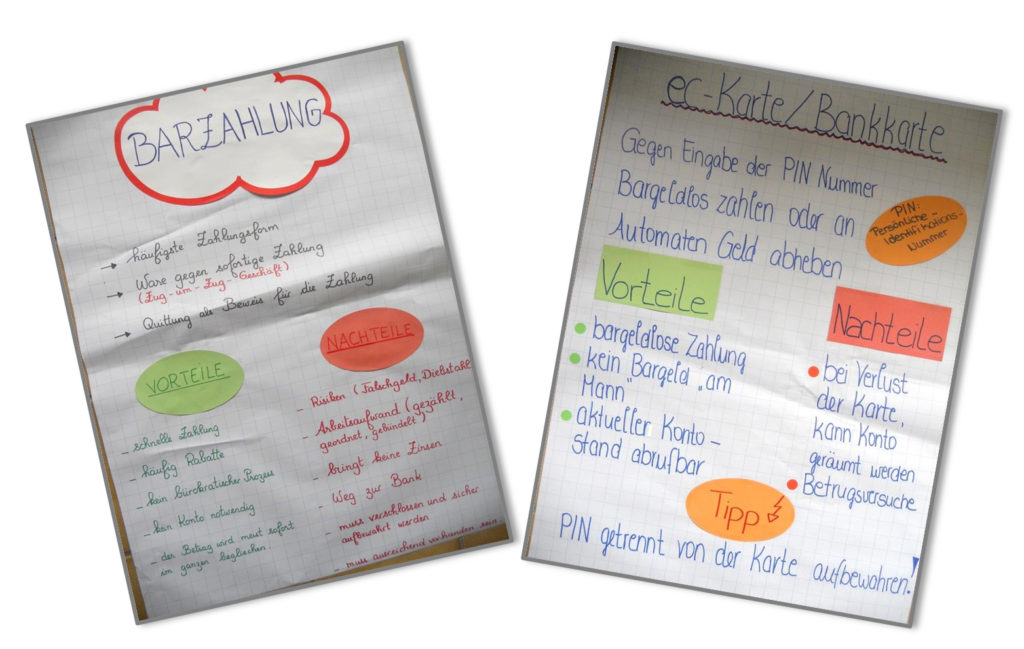 BARZAHLUNG
→ häufigste Zahlungsform
→ Ware gegen sofortige Zahlung
(Zug-um-Zug-Geschäft)
→ Quittung als Beweis für die Zahlung
VORTEILE
- schnelle Zahlung
- häufig Rabatte
- kein bürokratischer Prozess
- kein Konto notwendig
- der Betrag wird meist sofort
im ganzen beglichen.
NACHTEILE
- Risiken (Falschgeld, Diebstahl
- Arbeitsaufwand (gezählt,
geordnet, gebündelt)
- bringt keine Zinsen
- Weg zur Bank
- muss verschlossen und sicher
aufbewahrt werden
- muss ausreichend vorhanden sein
ec-Karte/Bankkarte
Gegen Eingabe der PIN Nummer
Bargeldlos zahlen oder an
Automaten Geld abheben
PIN:
Persönliche-
Identifikations-
Nummer
Vorteile
• bargeldlose Zahlung
• kein Bargeld „am
Mann"
• aktueller Konto-
stand abrufbar
Nachteile
• bei Verlust
der Karte,
kann Konto
geräumt werden
• Betrugsversuche
Tipp
PIN getrennt von der Karte aufbewahren!